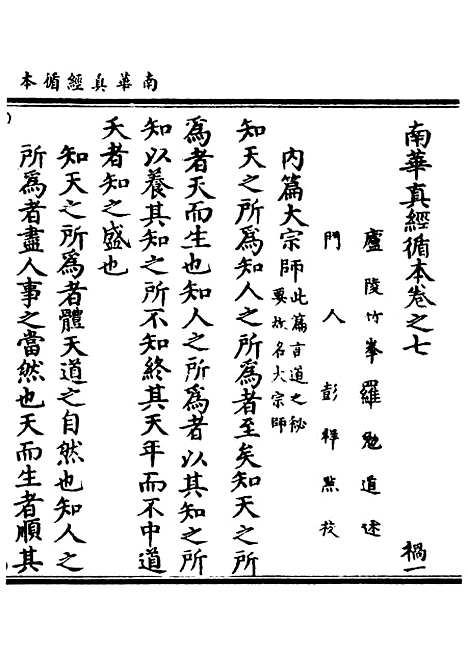 南華真經循本
南華真經循本卷之七　禍一
廬陵竹峯羅勉道述
門人彭祥點校
內篇大宗師此篇言道之祕
要故名大宗師
知天之所爲知人之所爲者至矣知天之所
爲者天而生也知人之所爲者以其知之所
知以養其知之所不知終其天年而不中道
夭者知之盛也
知天之所爲者體天道之自然也知人之
所爲者盡人事之當然也天而生者順其